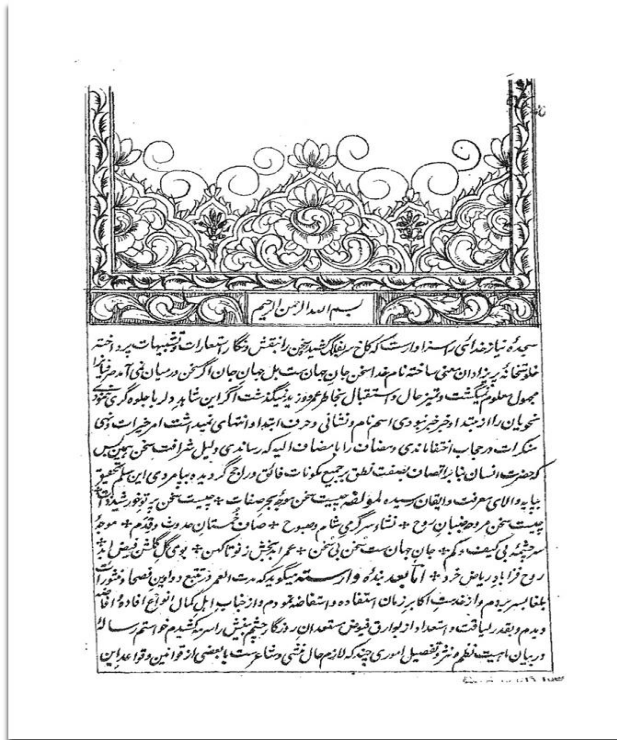 بسم الله الرحمن الرحیم
سجدهٔ نیاز خدائی را سزاوارست که کاخ سخن را بنقش و نگار استعارات و تشبیهات پرداخته
پریزادان معنی ساخته نام خدا سخن جان جهانست بل جهان جان اگر سخن در میان نمی آمد
مجهول معلوم نمیگشت و تمیز حال و استقبال بخاطر عمرو و زید نمیگذشت اگر این شاهد دلربا جلوه گری
نحویان را از مبتدا و خبر خبر نبودی اسم نام و نشانی و حرف ابتدا و انتهای
منکرات در حجاب اختفا ماندی و مضاف را با مضاف الیه که رساندی دلیل شرافت سخن همین بس
که حضرت انسان بنا بر اتصاف بصفت نطق بر جمیع مکونات فائق و راجح گردیده بیامردی این سلم تحقیق
بپایه والای معرفت و ایقان رسیده لمؤلفه چیست سخن موجهٔ بحر صفات چیست سخن پرتو خورشید ذات
چیست سخن مروحه جنبان روح نشاء سرگرمی شام و صبوح صاف خمستان حدوث و قدم موجهٔ
سرچشمهٔ بی کیف و کم جان جهانست سخن بی سخن عمر ابد بخش ز نو تا کهن بوی گل گلشن فیض ابد
روح فزا باد ریاض خرد اما بعد بنده وارسته میگوید که مدت العمر در تتبع دواوین فصحا و منشورات
بلغا بسر بردم و از خدمت اکابر زمان استفاده و استفاضه نمودم و از جناب اهل کمال انواع افاده و افاضه
دیدم و بقدر لیاقت و استعداد از بوارق فیوض مستعدان روزگار چشم بینش را سرمه کشیدم خواستم رساله
در بیان ماهیت نظم و نثر و تفصیل اموری چند که لازم حال منشی و شاعرست با بعضی از قوانین و قواعد این